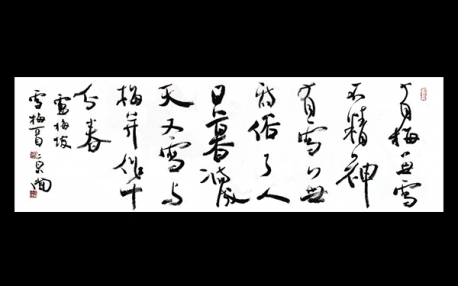 有梅无雪
不精神
有雪无
诗俗了人
日暮诗成
天又雪与
梅并作十
分春
盧梅坡
雪梅